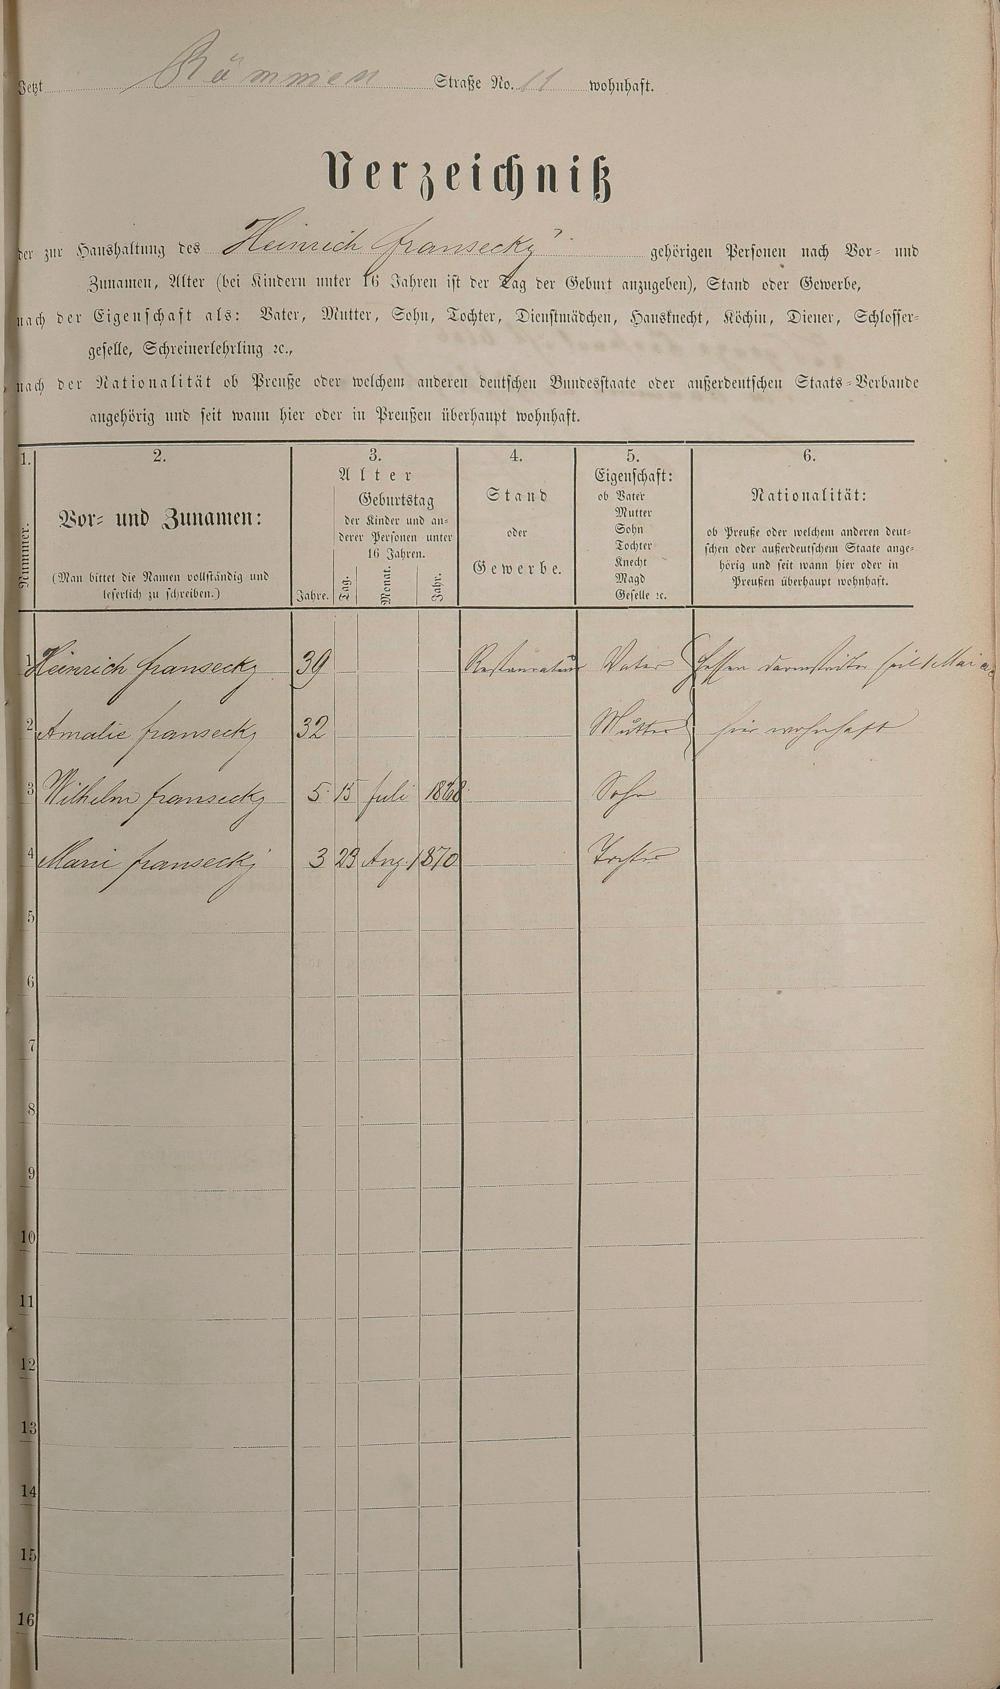 Jetzt Römmen Straße No. 11 wohnhaft.
Verzeichniß
der zur Haushaltung des Heinrich fransecky gehörigen Personen nach Vor- und
Zunamen, Alter (bei Kindern unter 16 Jahren ist der Tag der Geburt anzugeben), Stand oder Gewerbe,
nach der Eigenschaft als: Vater, Mutter, Sohn, Tochter, Dienstmädchen, Hausknecht, Köchin, Diener, Schlosser-
geselle, Schreinerlehrling ꝛc.,
nach der Nationalität ob Preuße oder welchem anderen deutschen Bundesstaate oder außerdeutschen Staats-Verbande
angehörig und seit wann hier oder in Preußen überhaupt wohnhaft.
1. 2. 3. 4. 5. 6.
Nummer.
Vor- und Zunamen:
(Man bittet die Namen vollständig und
leserlich zu schreiben.)
Alter
Geburtstag
der Kinder und an-
derer Personen unter
16 Jahren.
Jahre. Tag. Monat. Jahr.
Stand
oder
Gewerbe.
Eigenschaft:
ob Vater
Mutter
Sohn
Tochter
Knecht
Magd
Geselle ꝛc.
Nationalität:
ob Preuße oder welchem anderen deut-
schen oder außerdeutschem Staate ange-
hörig und seit wann hier oder in
Preußen überhaupt wohnhaft.
1 Heinrich fransecky 39 Restaurateur Vater Hessen darmstädter seit 1 Mai
2 Amalie fransecky 32 Mutter hier wohnhaft
3 Wilhelm fransecky 5 15 Juli 1868 Sohn
4 Marie fransecky 3 23 Aug. 1870 Tochter
5
6
7
8
9
10
11
12
13
14
15
16